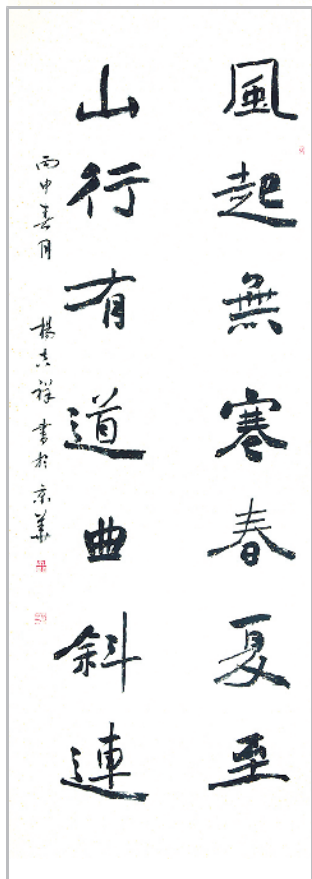 風起無寒春夏至
山行有道曲斜連
丙申春月 楊吉祥書於京華